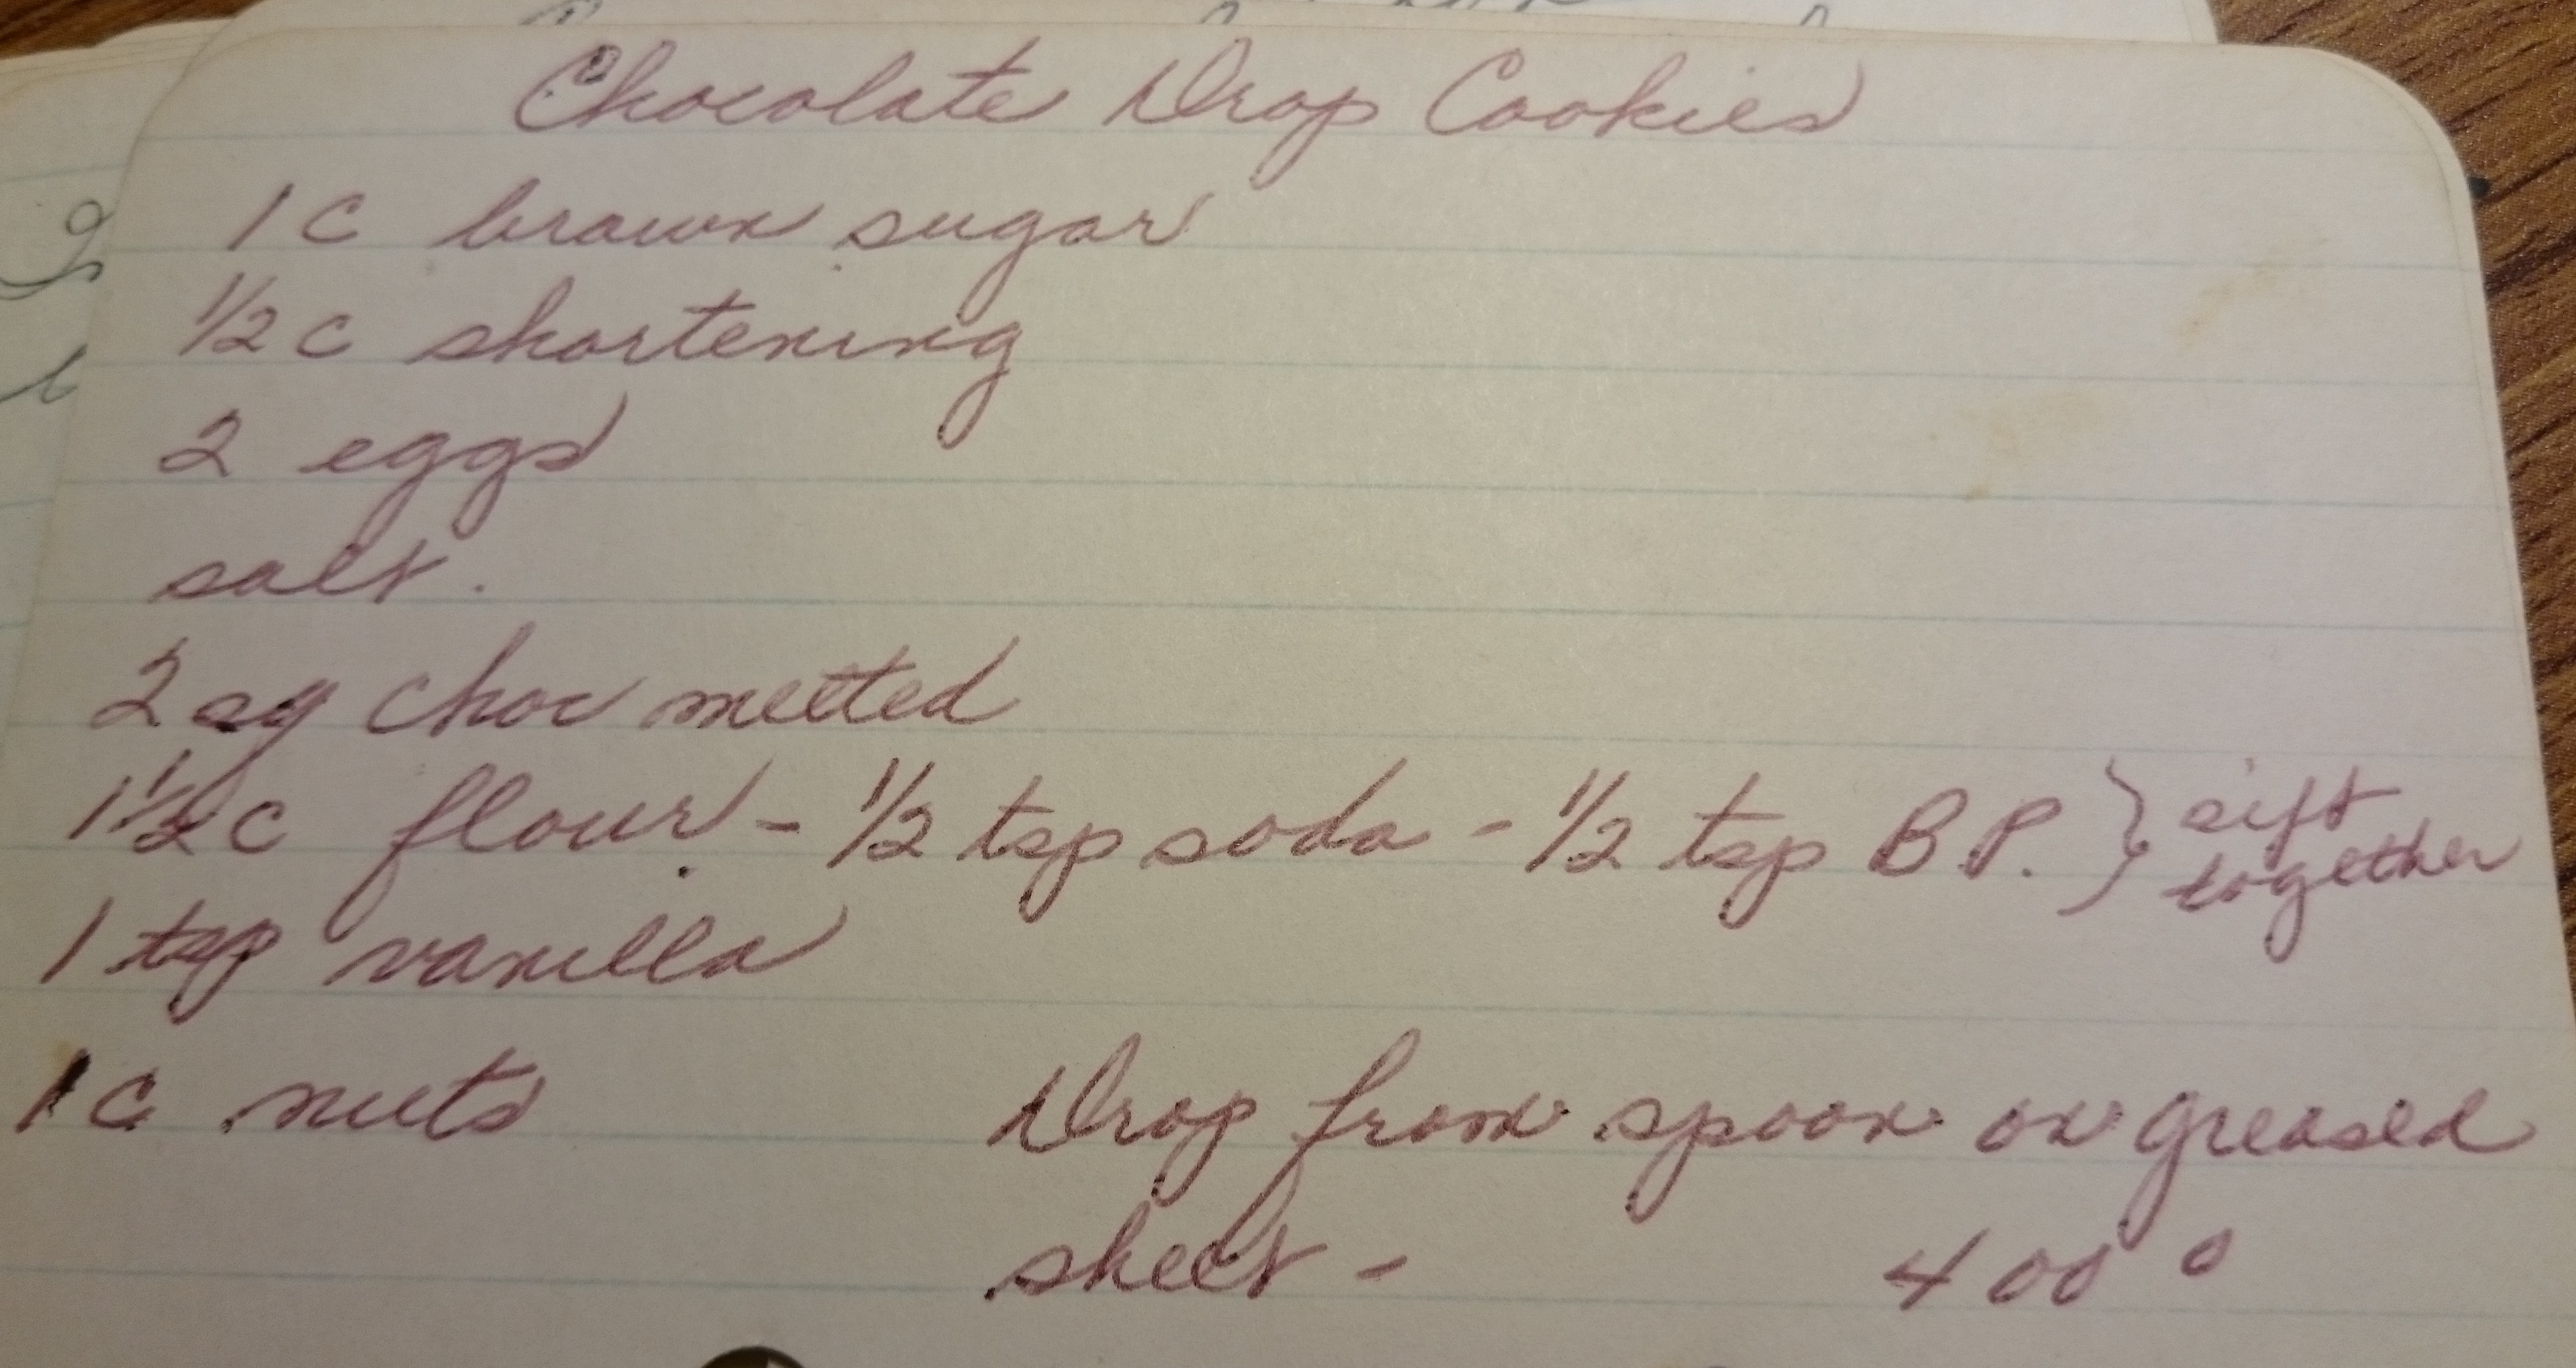 Chocolate Drop Cookies
1 c brown sugar
1/2 c shortening
2 eggs
salt.
2 sq choc melted
1 1/2 c flour - 1/2 tsp soda - 1/2 tsp B.P. } sift together
1 tsp vanilla
1 c nuts
Drop from spoon on greased
sheet - 400°